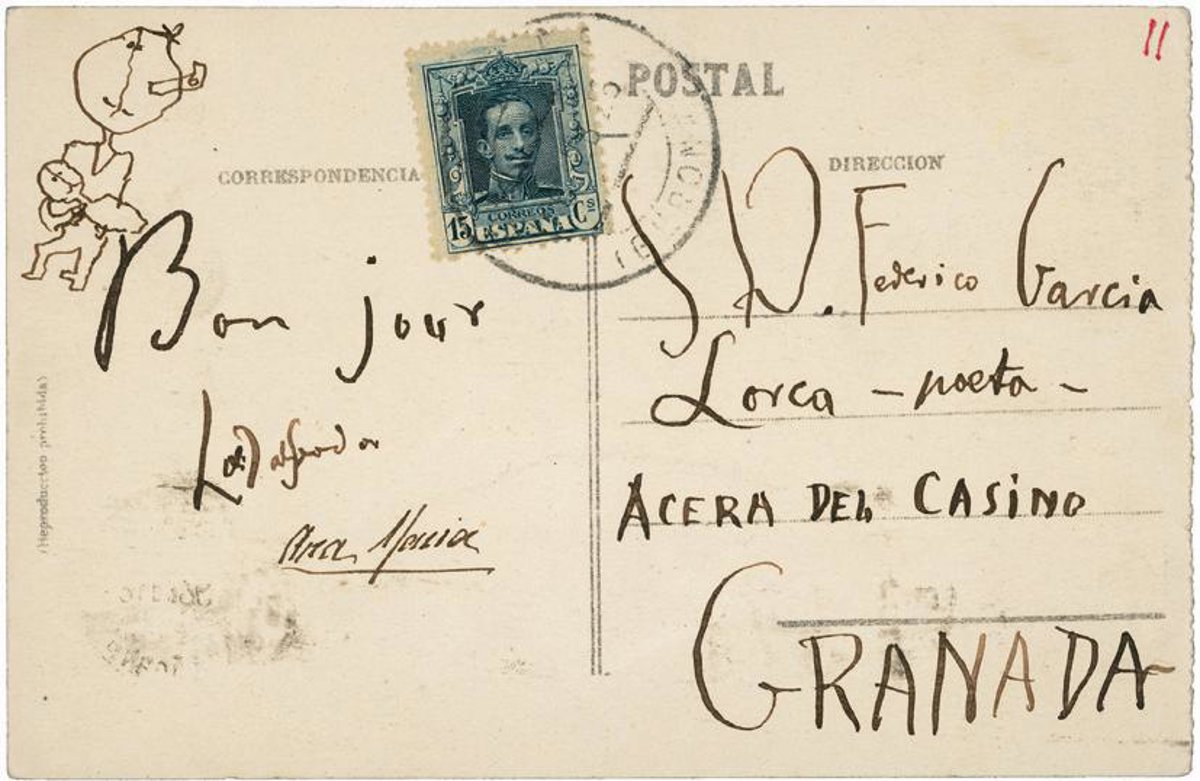 11
POSTAL
CORRESPONDENCIA
DIRECCION
15 CORREOS Cs
ESPAÑA
Bon jour
Ana Maria
S D. Federico Garcia
Lorca - poeta -
ACERA DEL CASINO
GRANADA
(Reproduccion prohibida)